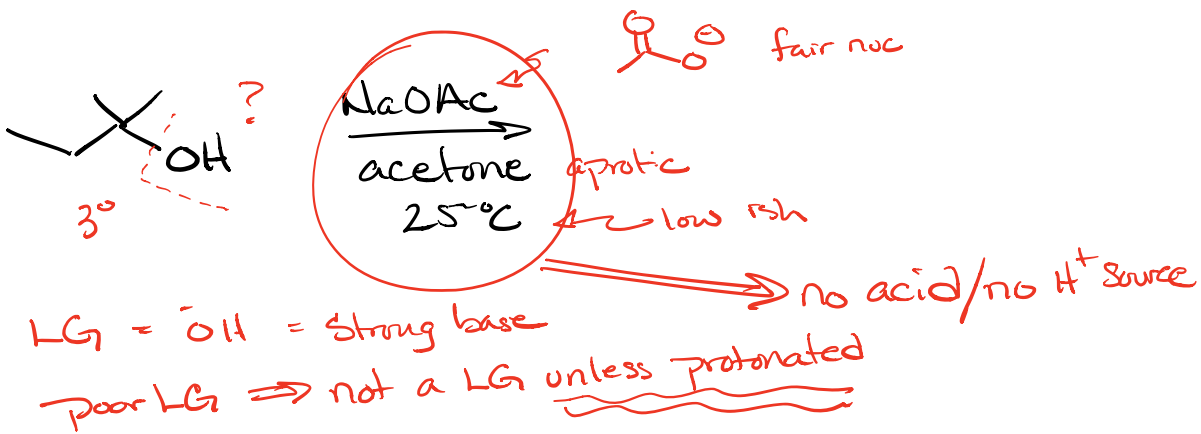 O ⊖
O
fair nuc
?
NaOAc
OH
acetone
aprotic
3°
25°C
low ish
no acid/no H⁺ source
LG = ⁻OH = strong base
poor LG ⇒ not a LG unless protonated